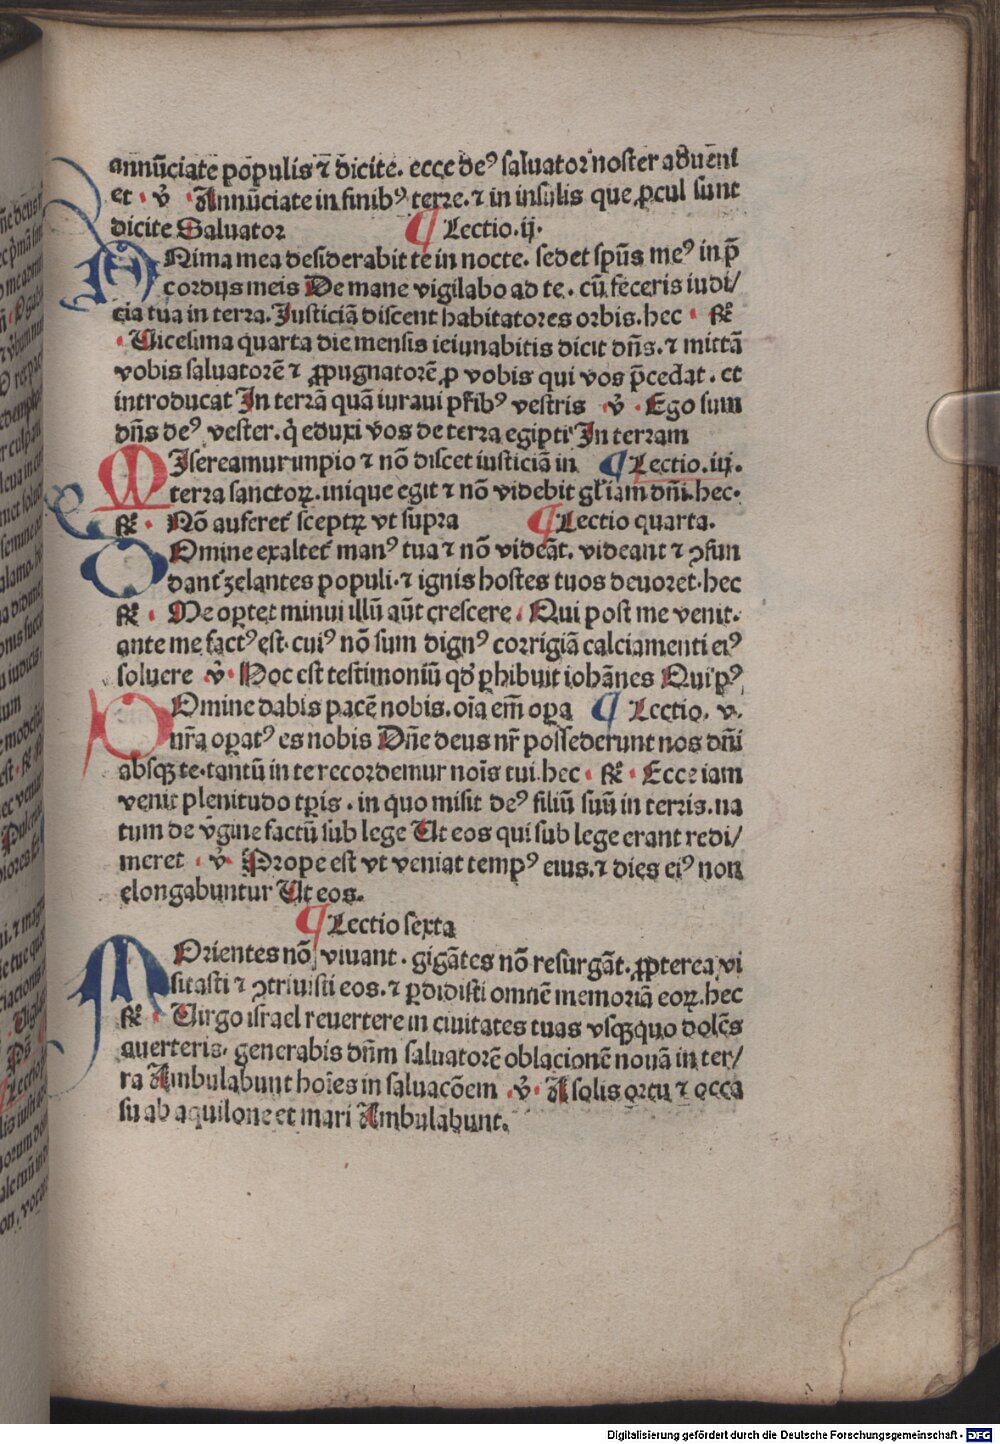 annūciate populis ⁊ dicite. ecce deꝰ saluator noster adueni
et · ꝟ · Annūciate in finibꝰ terre. ⁊ in insulis que ꝓcul sunt
dicite Saluator ¶ Lectio.ij.
ANima mea desiderabit te in nocte. sedet spūs meꝰ in p̄
cordijs meis De mane vigilabo ad te. cū feceris iudi/
cia tua in terra. Iusticiā discent habitatores orbis. hec · ℞
· Uicesima quarta die mensis ieiunabitis dicit dn̄s. ⁊ mittā
vobis saluatorē ⁊ ꝓpugnatorē ꝓ vobis qui vos p̄cedat. et
introducat In terrā quā iuraui pr̄ibꝰ vestris · ꝟ · Ego sum
dn̄s deꝰ vester. q̇ eduxi vos de terra egipti In terram
MIsereamur impio ⁊ nō discet iusticiā in ¶ Lectio.iij.
terra sanctoꝝ. inique egit ⁊ nō videbit gl̄iam dn̄i. hec.
℞ · Nō auferet᷑ sceptꝝ vt supra ¶ Lectio quarta.
DOmine exaltet᷑ manꝰ tua ⁊ nō videāt. videant ⁊ ꝯfun
dant᷑ zelantes populi. ⁊ ignis hostes tuos deuoret. hec
℞ · Me oꝑtet minui illū aūt crescere. Qui post me venit.
ante me factꝰ est. cuiꝰ nō sum dignꝰ corrigiā calciamenti eiꝰ
soluere · ꝟ · Hoc est testimoniū qd̄ ꝑhibuit iohānes Qui pꝰ
DOmine dabis pacē nobis. oīa em̄ oꝑa ¶ Lectio. v.
nr̄a oꝑatꝰ es nobis Dn̄e deus nr̄ possederunt nos dn̄i
absqꝫ te. tantū in te recordemur noīs tui. hec · ℞ · Ecce iam
venit plenitudo tp̄is. in quo misit deꝰ filiū suū in terris. na
tum de v̄gine factū sub lege Ut eos qui sub lege erant redi/
meret · ꝟ · Prope est vt veniat tempꝰ eius. ⁊ dies eiꝰ non
elongabuntur Ut eos.
¶ Lectio sexta
MOrientes nō viuant. gigātes nō resurgāt. ꝓpterea vi
sitasti ⁊ ꝯtriuisti eos. ⁊ ꝑdidisti omnē memoriā eoꝝ. hec
℞ · Uirgo israel reuertere in ciuitates tuas vsqꝫquo dolēs
auerteris. generabis dn̄m saluatorē oblacionē nouā in ter/
ra Ambulabunt hoīes in saluacōem · ꝟ · A solis ortu ⁊ occa
su ab aquilone et mari Ambulabunt.
Digitalisierung gefördert durch die Deutsche Forschungsgemeinschaft - DFG